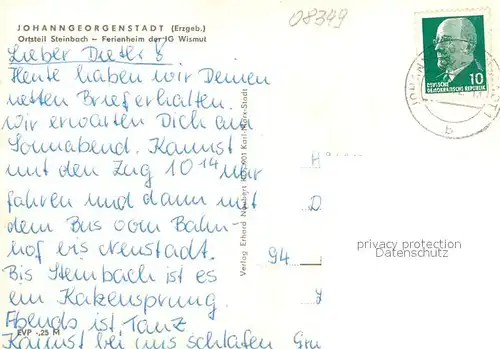 JOHANNGEORGENSTADT (Erzgeb.)
Ortsteil Steinbach – Ferienheim der IG Wismut
08349
10
DEUTSCHE
DEMOKRATISCHE REPUBLIK
b
Lieber Dieter!
Heute haben wir Deinen
netten Brief erhalten.
Wir erwarten Dich am
Sonnabend. Kannst
mit dem Zug 10 14 Uhr
fahren und dann mit
dem Bus vom Bahn-
hof bis Neustadt.
Bis Steinbach ist es
ein Katzensprung.
Abends ist Tanz
Kannst bei uns schlafen Gru
EVP -,25 M
Verlag Erhard Neubert KG, 9001 Karl-Marx-Stadt
H
D
94
privacy protection
Datenschutz